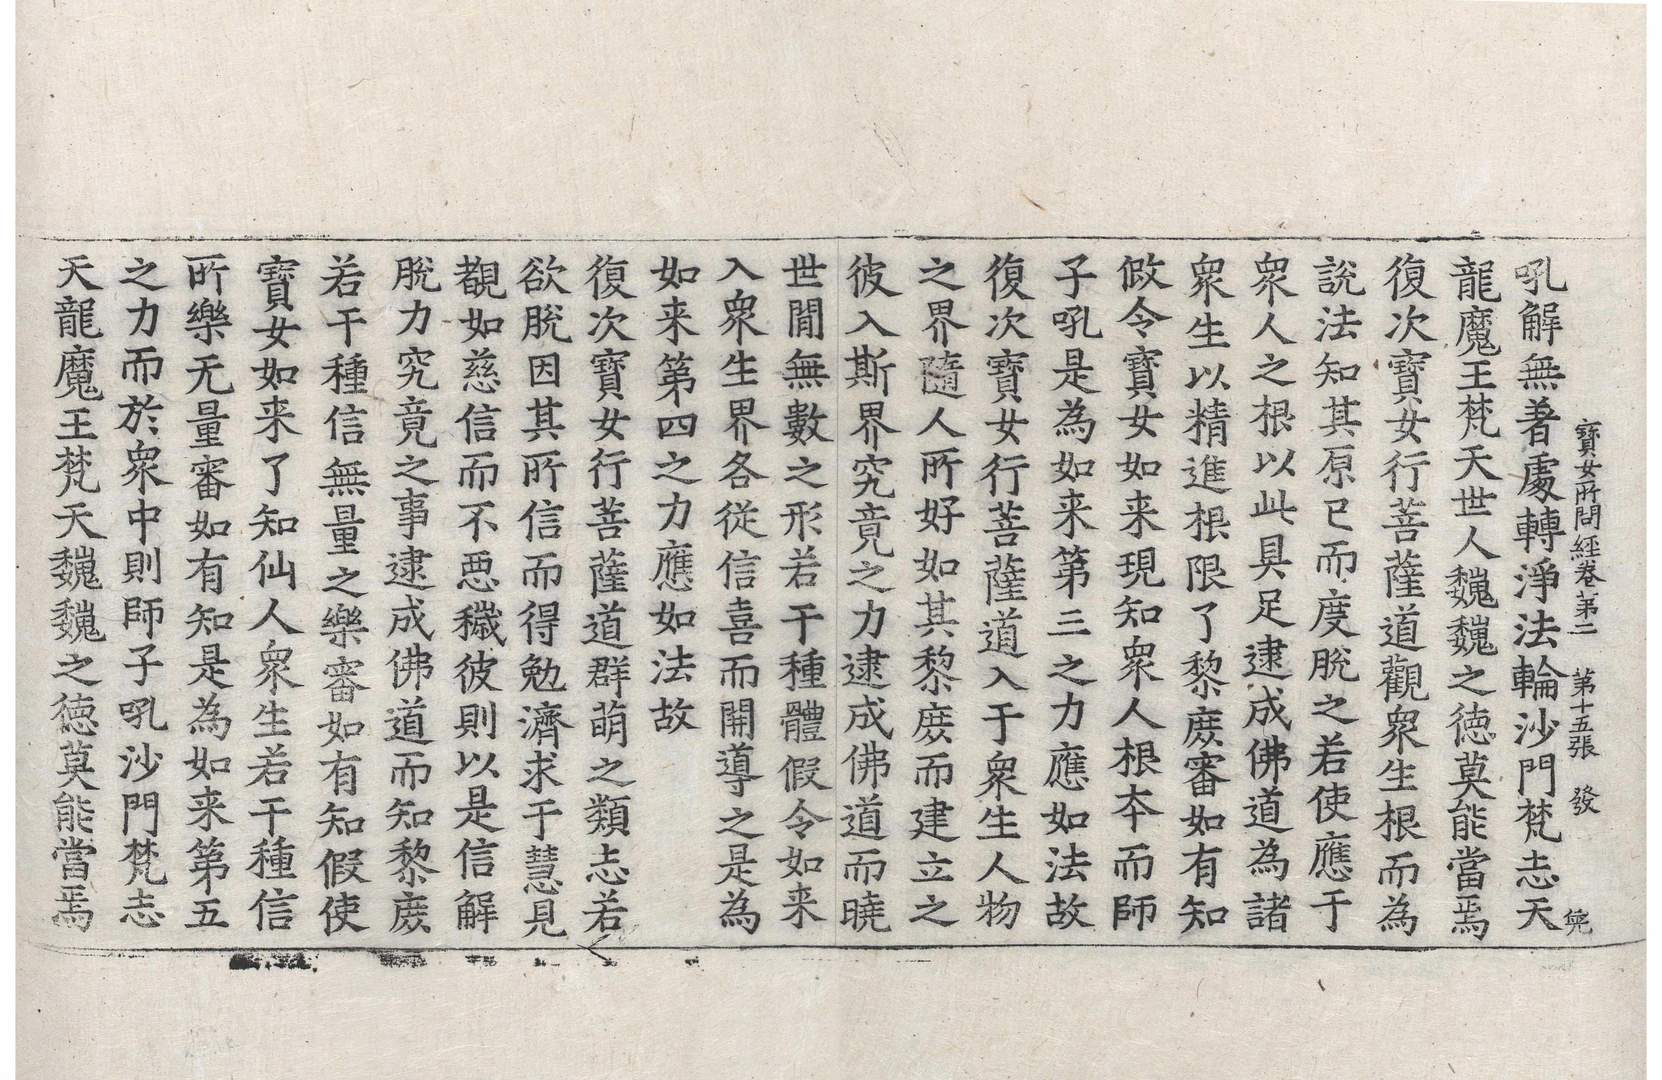 寶女所問經卷第二　第十五張　發
吼解無著處轉淨法輪沙門梵志天
龍魔王梵天世人巍巍之德莫能當焉
復次寶女行菩薩道觀衆生根而為
說法知其原已而度脫之若使應于
衆人之根以此具足逮成佛道為諸
衆生以精進根限了黎庶審如有知
倣令寶女如来現知衆人根本而師
子吼是為如来第三之力應如法故
復次寶女行菩薩道入于衆生人物
之界隨人所好如其黎庶而建立之
彼入斯界究竟之力逮成佛道而曉
世閒無數之形若干種體假令如来
入衆生界各從信喜而開導之是為
如来第四之力應如法故
復次寶女行菩薩道群萌之類志若
欲脫因其所信而得勉濟求于慧見
覩如慈信而不惡穢彼則以是信解
脫力究竟之事逮成佛道而知黎庶
若干種信無量之樂審如有知假使
寶女如来了知仙人衆生若干種信
所樂无量審如有知是為如来第五
之力而於衆中則師子吼沙門梵志
天龍魔王梵天巍巍之德莫能當焉